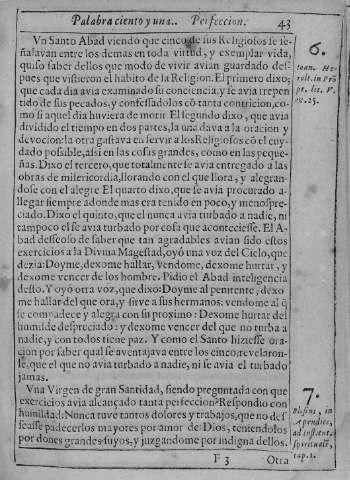 Palabra ciento y una.. Perfeccion. 43
Vn Santo Abad viendo que cinco de sus Religiosos se se-
ñalavan entre los demas en toda virtud, y exemplar vida,
quiso saber dellos que modo de vivir avian guardado des-
pues que vistieron el habito de la Religion. El primero dixo;
que cada dia avia examinado su conciencia, y se avia repen
tido de sus pecados, y confessadolos cõ tanta contricion, co-
mo si aquel dia huviera de morir El segundo dixo, que avia
dividido el tiempo en dos partes, la una dava a la oracion y
devocion: la otra gastava en servir a los Religiosos cõ el cuy-
dado possible, assi en las cosas grandes, como en las peque-
ñas. Dixo el tercero, que totalmente se avia entregado a las
obras de misericordia, llorando con el que llora, y alegran-
dose con el alegre El quarto dixo, que se avia procurado a-
llegar siempre adonde mas era tenido en poco, y menospre-
ciado. Dixo el quinto, que el nunca avia turbado a nadie, ni
tampoco el se avia turbado por cosa que aconteciesse. El A-
bad desseoso de saber que tan agradables avian sido estos
exercicios a la Divina Magestad, oyó una voz del Cielo, que
dezia: Doyme, dexome hallar, vendome, dexome hurtar, y
dexome vencer de los hombre. Pidio el Abad inteligencia
desto. Y oyó otra voz, que dixo: Doyme al penitente, dexo
me hallar del que ora, y sirve a sus hermanos: vendome al q̃
se compadece y alegra con su proximo: Dexome hurtar del
humilde despreciado: y dexome vencer del que no turba a
nadie, y con todos tiene paz. Y como el Santo hiziesse ora-
cion por saber qual se aventajava entre los cinco; revelaron-
le, que el que no avia turbado a nadie, ni se avia el turbado
jamas.
Vna Virgen de gran Santidad, siendo preguntada con que
exercicios avia alcançado tanta perfeccion? Respondio con
humildad: Nunca tuve tantos dolores y trabajos, que no des
seasse padecerlos mayores por amor de Dios, teniendolos
por dones grandes suyos, y juzgandome por indigna dellos.
F 3 Otra
6.
Ioan. He-
rolt. in Prõ
pt. lit. P.
ex. 25.
7.
Blosius, in
Apendice,
ad institut.
spirituale,
cap. 1.